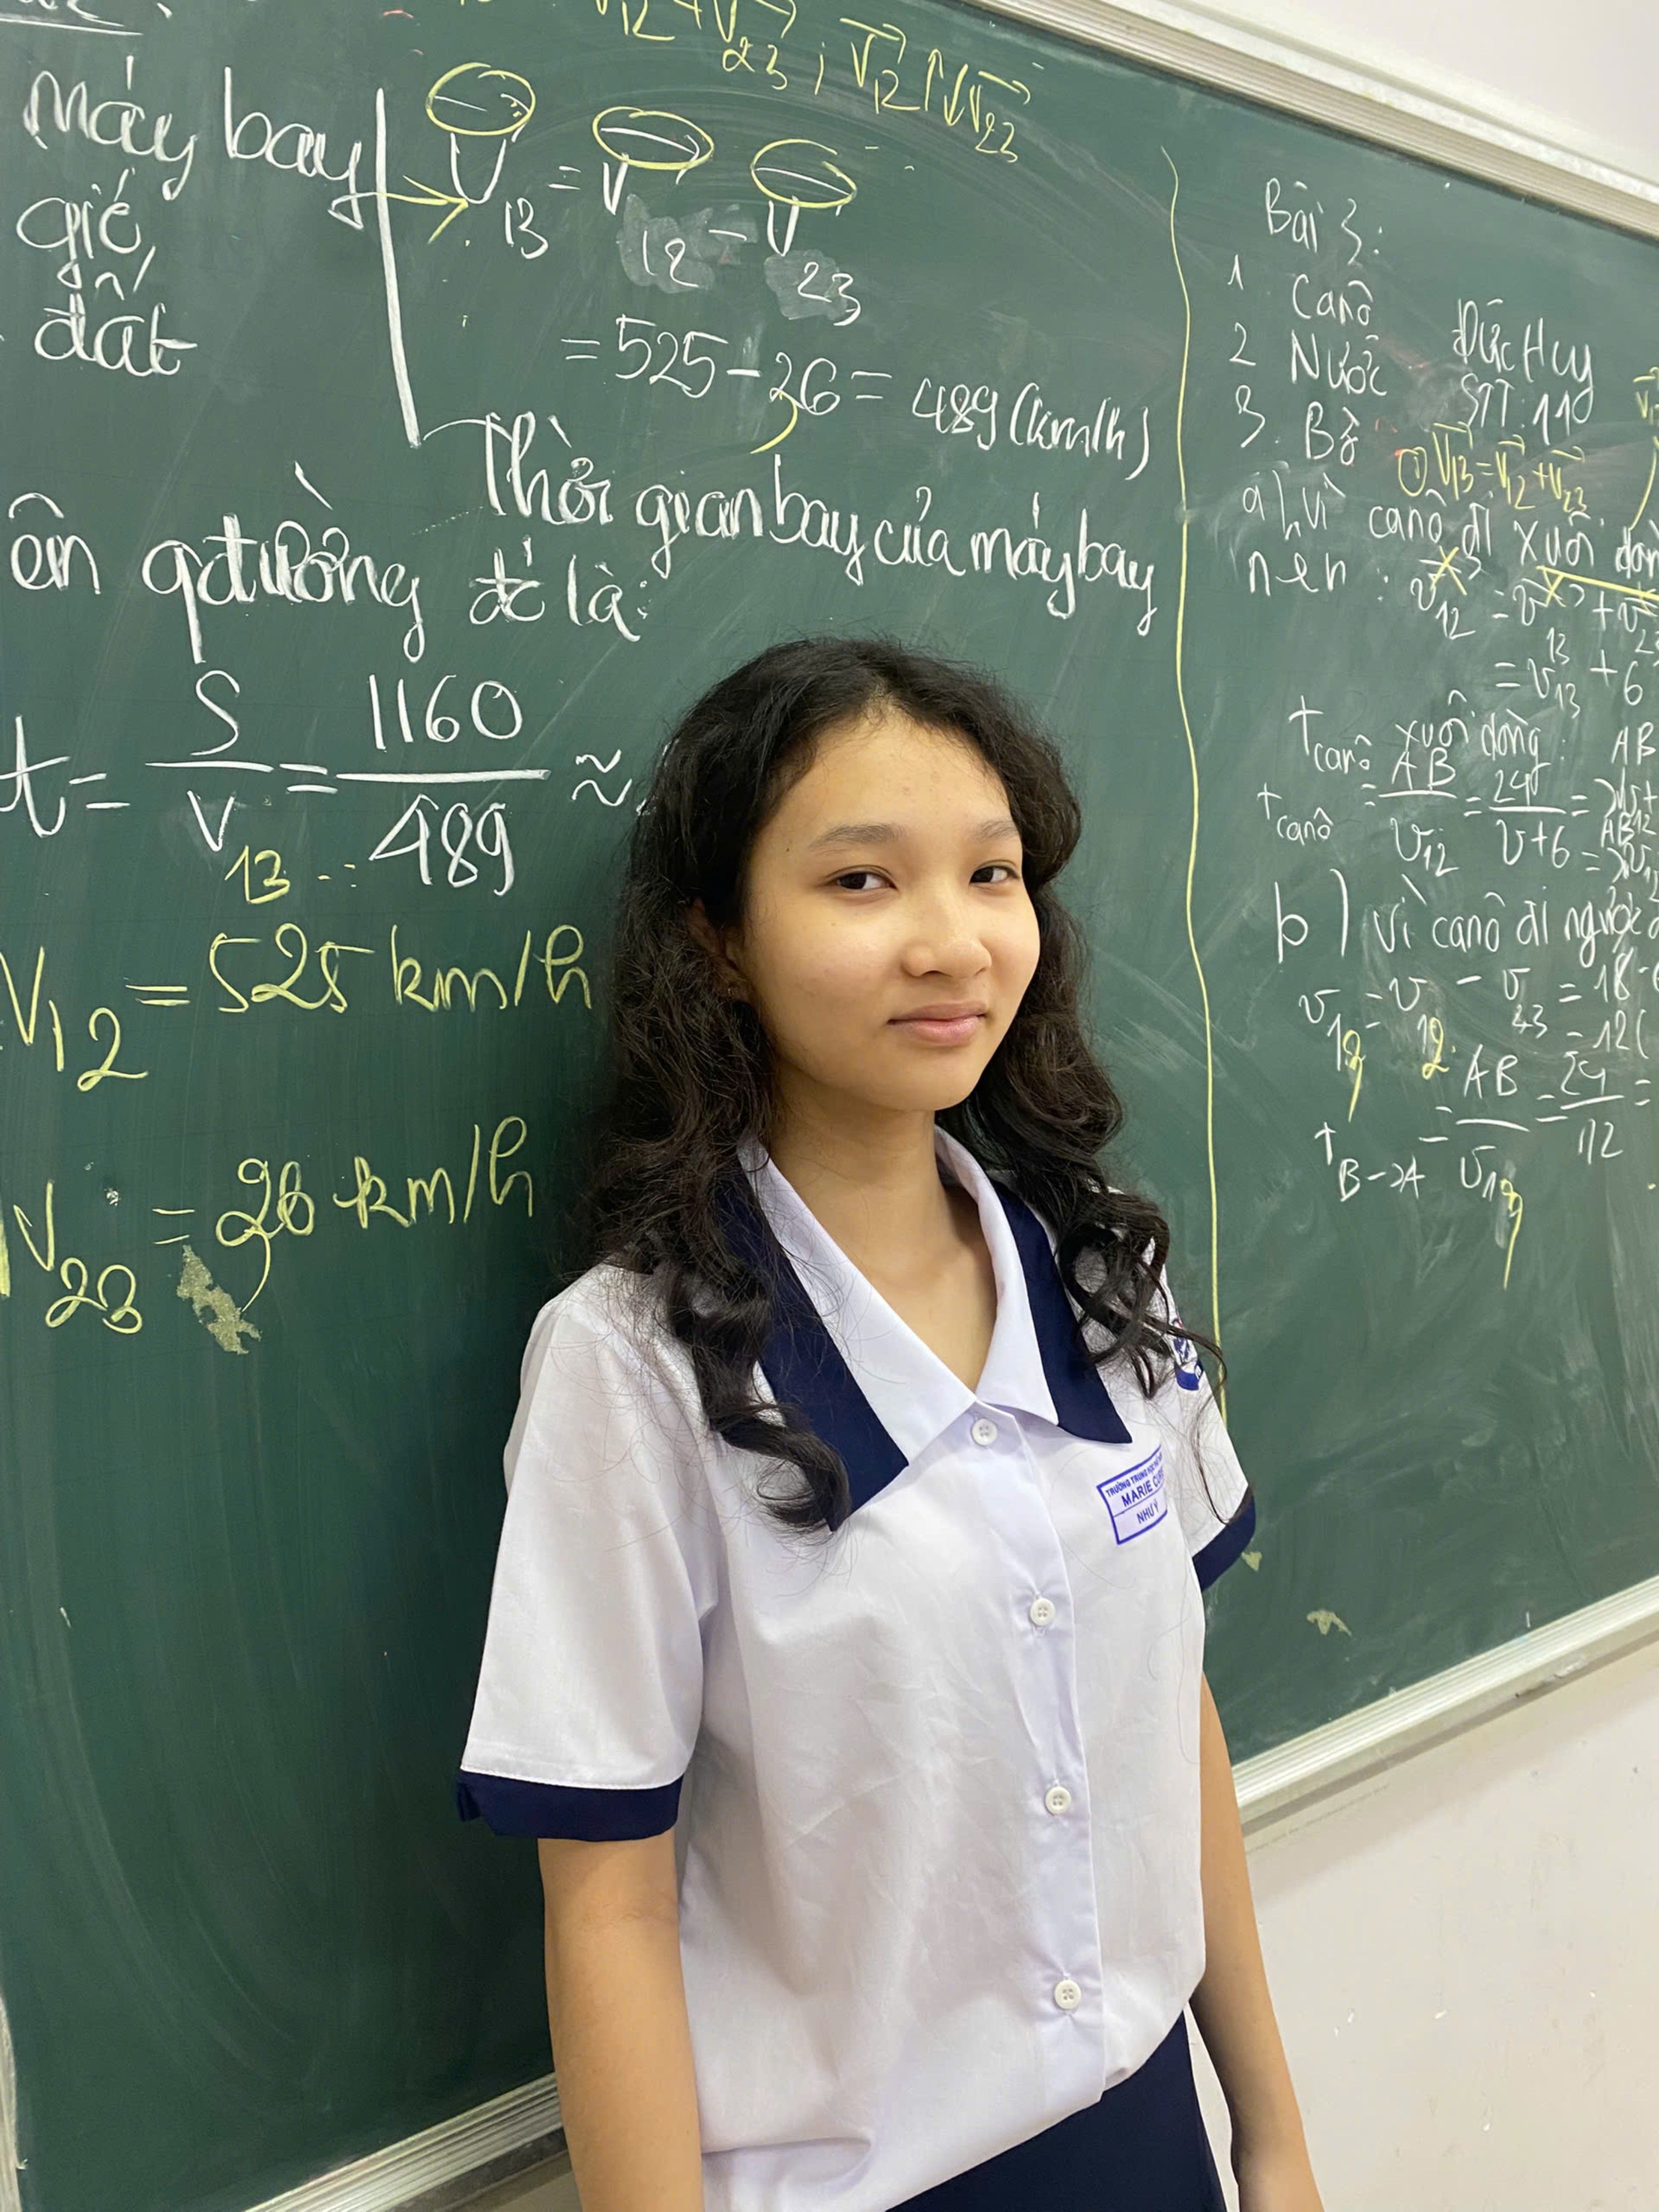 V12 + V23 ; V12 ↑↓ V23
máy bay
gió
đất
V13 = V12 - V23
= 525 - 36 = 489 (km/h)
Thời gian bay của máy bay
ên qđường đó là:
t = S/V13 = 1160/489 ≈
V12 = 525 km/h
V23 = 36 km/h
Bài 3:
1 Canô
2 Nước
3. Bờ
Đức Huy
STT: 11
① V13 = V12 + V23
a) Vì canô đi xuôi dòn
nên : v12 = v13 + v23
= v13 + 6
t canô xuôi dòng : AB
t canô = AB/v12 = 24/v+6 =
b) Vì canô đi ngược
v13 = v12 - v23 = 18 -
= 12 (
t B→A = AB/v13 = 24/12 =
TRƯỜNG TRUNG HỌC
MARIE CURIE
NHƯ Ý